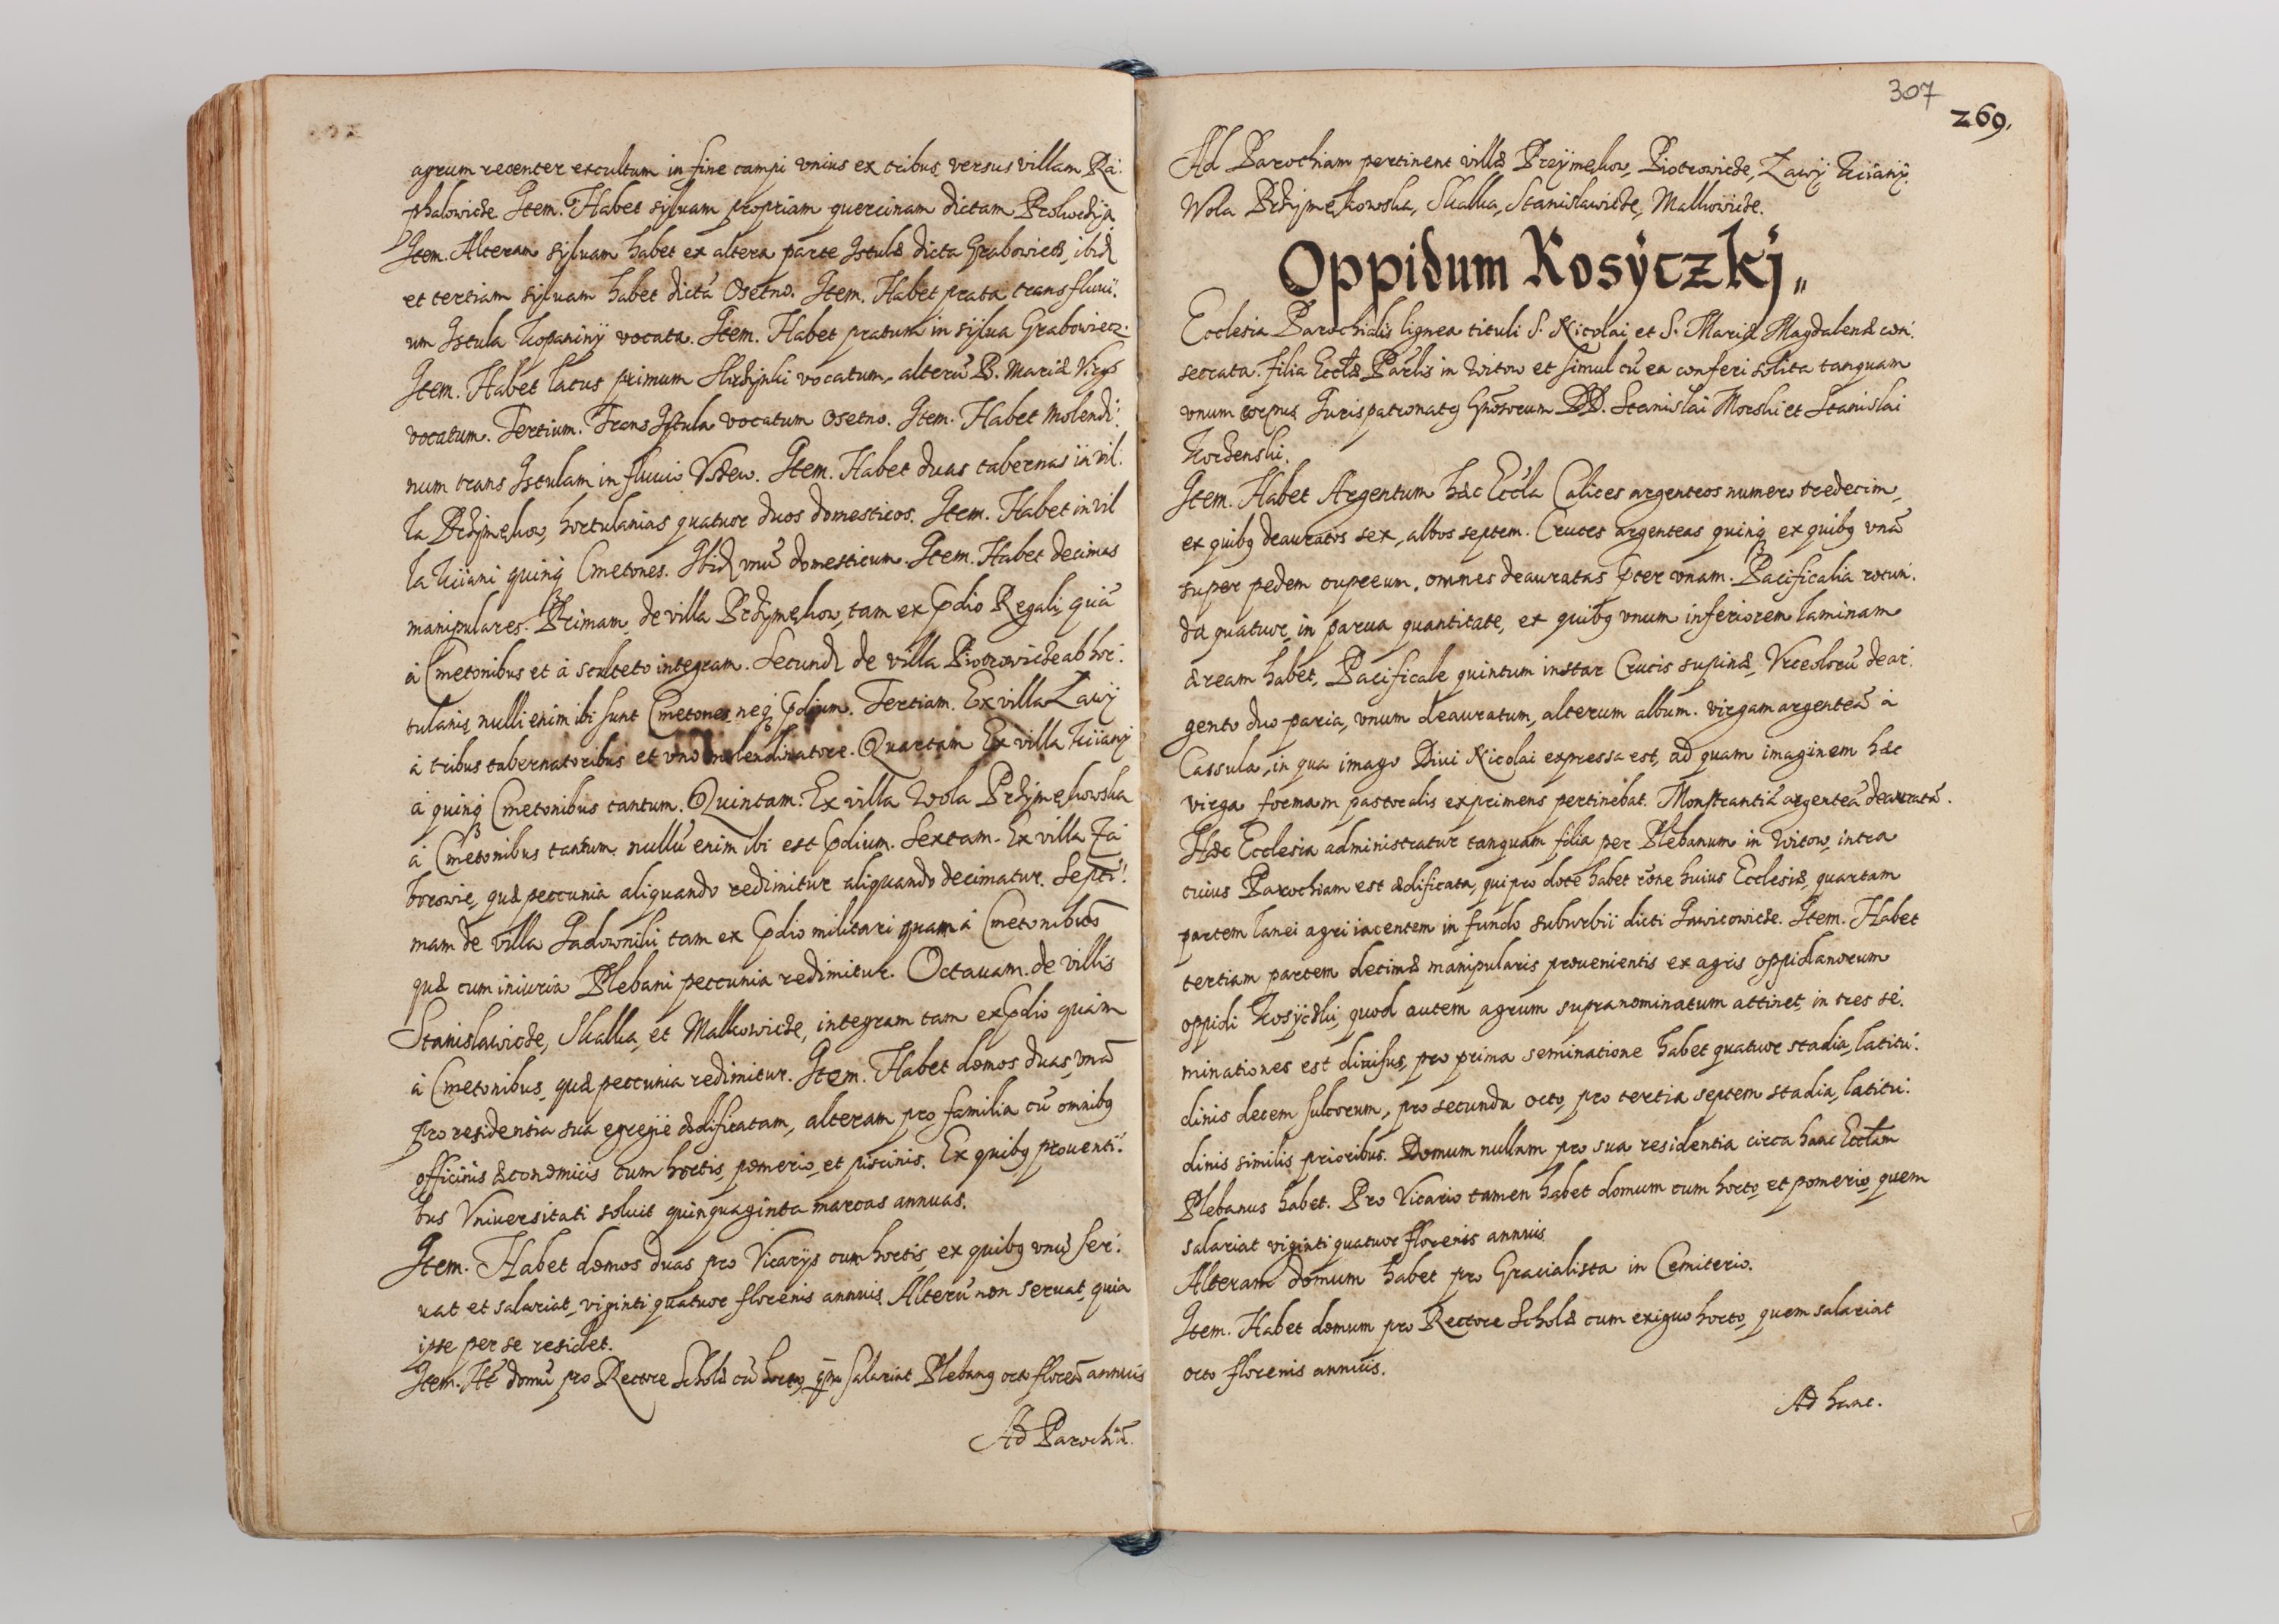 agrum recenter excultum in fine campi vnius ex tribus, versus villam Ra:
phalowicze Item. Habet syluam propriam quercinam dictam
Item. Alteram syluam habet ex altera parte Istulæ dicta Grabowiecz, ibid
et tertiam syluam habet dictã Osetno. Item. Habet prata trans fluui:
um Istula Kopaniny vocata. Item. Habet pratum in sylua Grabowiecz.
Item. Habet lacus primum vocatum, alterũ B. Mariæ Virgs
vocatum. Tertium. Trans Istula vocatum Osetno. Item. Habet Molendi:
num trans Istulam in fluuio Vszew. Item. Habet duas tabernas in vil:
la Przÿmękow, hortulanias quatuor duos domesticos. Item. Habet in vil
la Kuiani quinq Cmetones. Ibid vnũ domesticum. Item. Habet decimas
manipulares. Primam, de villa Przymękow, tam ex pdio Regali, quã
à Cmetonibus et à sculteto integram. Secund de villa Piotrowicze ab hor:
tulanis, nulli enim ibi sunt Cmetones, neq pdium. Tertiam. Ex villa Zawÿ
à tribus tabernatoribus et vno molendinatore. Quartam Ex villa Kuianÿ
à quinq Cmetonibus tantum. Quintam. Ex villa Wola Przÿmękowska
à Cmetonibus tantum, nullũ enim ibi est pdium. Sextam. Ex villa Ja:
borowie, quæ peccunia aliquando redimitur aliquando decimatur. Septi:
mam de villa Jadowniki tam ex pdio militari quam à Cmetonibus
quæ cum iniuria Plebani peccunia redimitur. Octauam. de villis
Stanislawicze, Skalka, et Malkowicze, integram tam ex pdio quam
à Cmetonibus, quæ peccunia redimitur. Item. Habet domos duas, vnã
pro residentia sua egregiè ædificatam, alteram pro familia cũ omnibg
officinis æconomicis cum hortis, pomerio, et piscinis. Ex quibg prouenti:
bus Vniuersitati soluit quinquaginta marcas annuas.
Item. Habet domos duas pro Vicarÿs cum hortis, ex quibg vnũ ser:
uat et salariat, viginti quatuor florenis annuis. Alterũ non seruat, quia
ipse per se residet.
Item. Ht domũ pro Rectore Scholæ cũ horto, salariat Plebang octo floren annuis
Ad Parochiã.
307
269.
Ad Parochiam pertinent villæ Przÿmękow, Piotrowicze, Zawÿ, Kuianÿ.
Wola Przÿmękowska, Skalka, Stanislawicze, Malkowicze.
Oppidum Kosÿczkj
Ecclesia Parochialis lignea tituli S. Nicolai et S. Mariæ Magdalenæ con:
secrata. filia Ecclæ Parlis in Witow et simul cũ ea conferi solita tanquam
vnum corpus Jurispatronatg Gnosorum DD. Stanislai Morski et Stanislai
Kordenski.
Item. Habet Argentum hæc Eccla Calices argenteos numero tredecim,
ex quibg deauratos sex, albos septem. Cruces argenteas quinq, ex quibg vnã
super pedem cupreum, omnes deauratas pter vnam. Pacificalia rotun:
da quatuor, in parua quantitate, ex quibg vnum inferiorem laminam
æream habet, Pacificale quintum instar Crucis supinæ, Vrceolorũ de ar:
gento duo paria, vnum deauratum, alterum album. virgam argenteã à
Cassula, in qua imago Diui Nicolai expressa est, ad quam imaginem hæc
virga formam pastoralis exprimens pertinebat. Monstrantiã argenteã deauratã.
Hæc Ecclesia administratur tanquam filia per Plebanum in Witow, intra
cuius Parochiam est ædificata, qui pro dote habet rõne huius Ecclesiæ, quartam
partem lanei agri iacentem in fundo suburbii dicti Gawicowicze. Item. Habet
tertiam partem decimæ manipularis prouenientis ex agris oppidanorum
oppidi Kosÿczki, quod autem agrum supranominatum attinet, in tres se:
minationes est diuisus, pro prima seminatione habet quatuor stadia, latitu:
dinis decem sulcorum, pro secunda octo, pro tertia septem stadia, latitu:
dinis similis prioribus. Domum nullam pro sua residentia circa hanc Ecclam
Plebanus habet. Pro Vicario tamen habet domum cum horto, et pomerio, quem
salariat viginti quatuor florenis annuis.
Alteram domum habet pro Gracialista in Cemiterio.
Item. Habet domum pro Rectore Scholæ cum exiguo horto, quem salariat
octo florenis annuis.
Ad hanc.